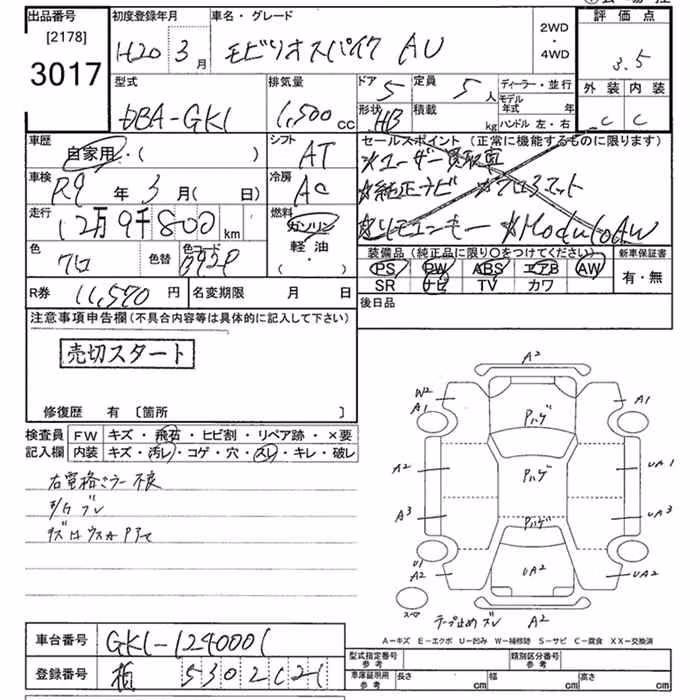 出品番号 初度登録年月 車名・グレード 評価点
[2178]
3017
H20 3月 モビリオスパイク AU 2WD・4WD 3.5
型式 排気量 ドア 5 定員 5人 ディーラー・並行 外装 内装
DBA-GK1 1,500cc 形状 HB 積載 kg モデル年式 年 ハンドル 左・右 C C
車歴 自家用・( ) シフト AT
セールスポイント (正常に機能するものに限ります)
*ユーザー買取車
*純正ナビ
*リモコンキー *ModuloAW
車検 R9年3月( 日) 冷房 AC
走行 12万9千800km 燃料 ガソリン 軽油 ( ・ )
色 クロ 色替 色コード B92P
装備品 (純正品に限り〇をつけてください) 新車保証書
PS PW ABS エアB AW 有・無
SR ナビ TV カワ
R券 11,570円 名変期限 月 日 後日品
注意事項申告欄 (不具合内容等は具体的に記入して下さい)
売切スタート
修復歴 有 〔箇所 〕
検査員記入欄 FW キズ・飛石・ヒビ割・リペア跡・×要
内装 キズ・汚レ・コゲ・穴・スレ・キレ・破レ
右電格ミラー不良
A2
W2
A1 A1
Pハゲ
A2 Pハゲ UA1
A3 Pハゲ UA3
U1
A2 UA2 UA2
スペア
テープ止め ズレ A2
A-キズ E-エクボ U-凹み W-補修跡 S-サビ C-腐食 XX-交換済
車台番号 GK1-1240001
登録番号 柏 530 2 C 21
型式指定番号 参考 類別区分番号 参考
車庫証明用 参考 長さ cm 幅 cm 高さ cm